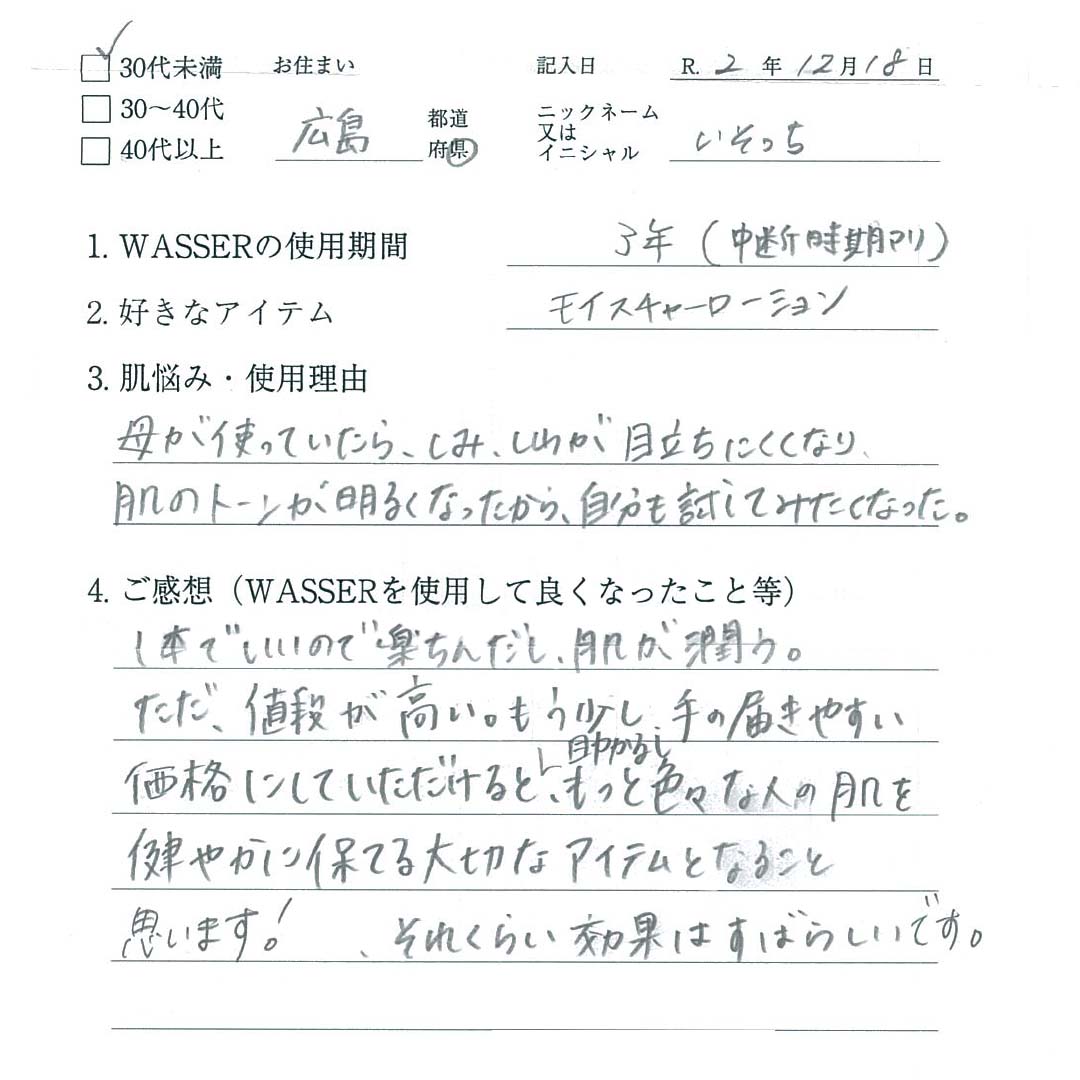 30代未満 お住まい 記入日 R. 2 年 12月18日
30～40代 広島 都道府県 ニックネーム又はイニシャル いそっち
40代以上
1. WASSERの使用期間 3年(中断時期アリ)
2. 好きなアイテム モイスチャーローション
3. 肌悩み・使用理由
母が使っていたら、しみ、しわが目立ちにくくなり、
肌のトーンが明るくなったから、自分も試してみたくなった。
4. ご感想（WASSERを使用して良くなったこと等）
1本でいいので楽ちんだし、肌が潤う。
ただ、値段が高い。もう少し、手の届きやすい
価格にしていただけると、助かるし もっと色々な人の肌を
健やかに保てる大切なアイテムとなること
思います! 、それくらい効果はすばらしいです。